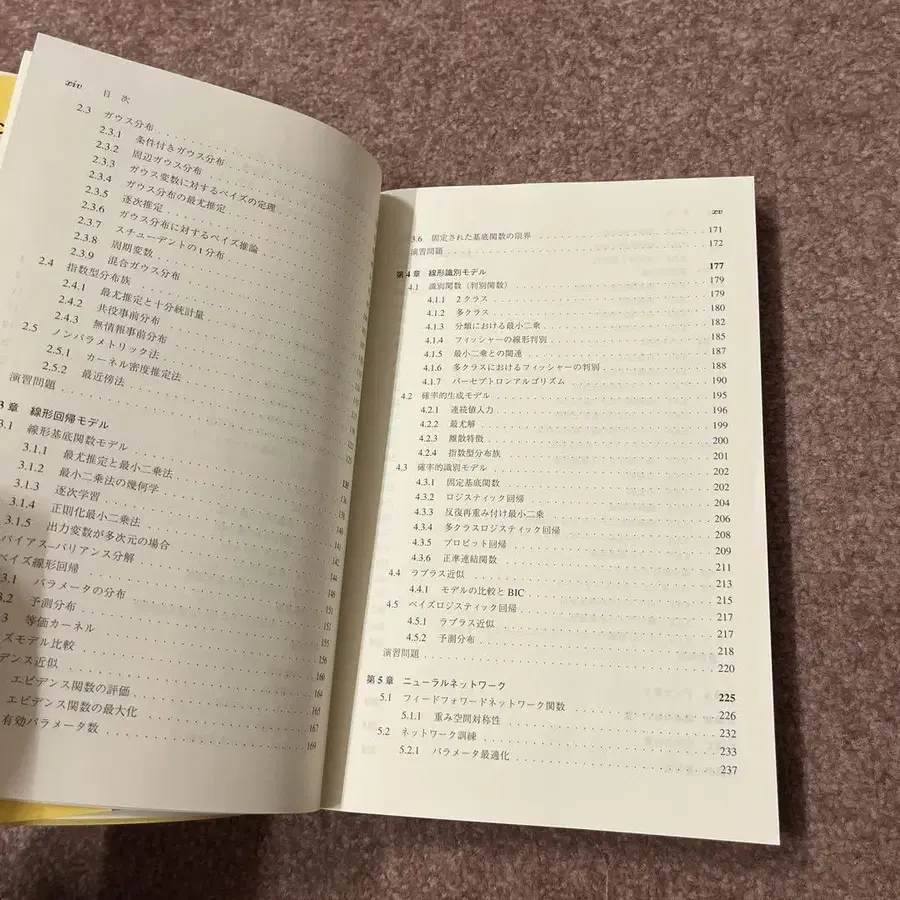 xiv 目 次
2.3 ガウス分布
2.3.1 条件付きガウス分布
2.3.2 周辺ガウス分布
2.3.3 ガウス変数に対するベイズの定理
2.3.4 ガウス分布の最尤推定
2.3.5 逐次推定
2.3.6 ガウス分布に対するベイズ推論
2.3.7 スチューデントのt分布
2.3.8 周期変数
2.3.9 混合ガウス分布
2.4 指数型分布族
2.4.1 最尤推定と十分統計量
2.4.2 共役事前分布
2.4.3 無情報事前分布
2.5 ノンパラメトリック法
2.5.1 カーネル密度推定法
2.5.2 最近傍法
演習問題
3 章 線形回帰モデル
3.1 線形基底関数モデル
3.1.1 最尤推定と最小二乗法
3.1.2 最小二乗法の幾何学
3.1.3 逐次学習
3.1.4 正則化最小二乗法
3.1.5 出力変数が多次元の場合
バイアス−バリアンス分解
ベイズ線形回帰
3.1 パラメータの分布
3.2 予測分布
3 等価カーネル
ズモデル比較
デンス近似
エビデンス関数の評価
エビデンス関数の最大化 167
有効パラメータ数 169
xv
3.6 固定された基底関数の限界 171
演習問題 172
第 4 章 線形識別モデル 177
4.1 識別関数（判別関数） 179
4.1.1 2クラス 179
4.1.2 多クラス 180
4.1.3 分類における最小二乗 182
4.1.4 フィッシャーの線形判別 185
4.1.5 最小二乗との関連 187
4.1.6 多クラスにおけるフィッシャーの判別 188
4.1.7 パーセプトロンアルゴリズム 190
4.2 確率的生成モデル 195
4.2.1 連続値入力 196
4.2.2 最尤解 199
4.2.3 離散特徴 200
4.2.4 指数型分布族 201
4.3 確率的識別モデル 202
4.3.1 固定基底関数 202
4.3.2 ロジスティック回帰 204
4.3.3 反復再重み付け最小二乗 206
4.3.4 多クラスロジスティック回帰 208
4.3.5 プロビット回帰 209
4.3.6 正準連結関数 211
4.4 ラプラス近似 213
4.4.1 モデルの比較と BIC 215
4.5 ベイズロジスティック回帰 217
4.5.1 ラプラス近似 217
4.5.2 予測分布 218
演習問題 220
第 5 章 ニューラルネットワーク 225
5.1 フィードフォワードネットワーク関数 226
5.1.1 重み空間対称性 232
5.2 ネットワーク訓練 233
5.2.1 パラメータ最適化 237